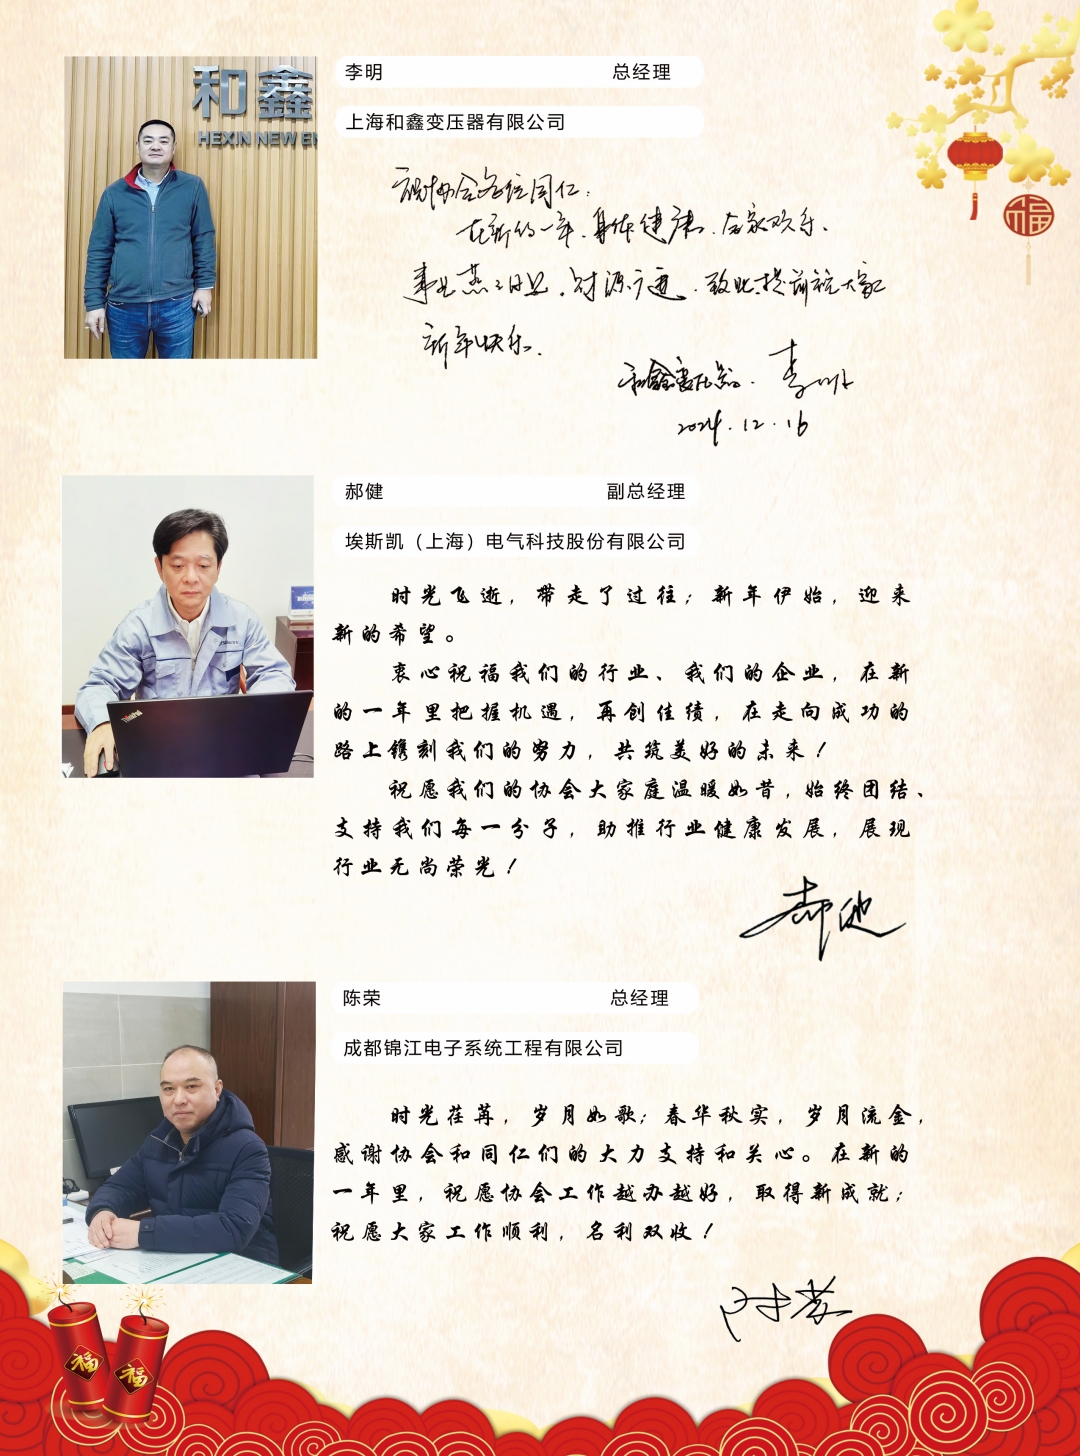 和鑫
HEXIN NEW EN
李明 总经理
上海和鑫变压器有限公司
祝协会各位同仁:
在新的一年、身体健康、合家欢乐、
事业蒸蒸日上、财源广进、致此提前祝大家
新年快乐.
和鑫变压器. 李明
2024.12.16
福
郝健 副总经理
埃斯凯(上海)电气科技股份有限公司
时光飞逝,带走了过往;新年伊始,迎来
新的希望。
衷心祝福我们的行业、我们的企业,在新
的一年里把握机遇,再创佳绩,在走向成功的
路上镌刻我们的努力,共筑美好的未来!
祝愿我们的协会大家庭温暖如昔,始终团结、
支持我们每一分子,助推行业健康发展,展现
行业无尚荣光!
郝健
ThinkPad
陈荣 总经理
成都锦江电子系统工程有限公司
时光荏苒,岁月如歌;春华秋实,岁月流金,
感谢协会和同仁们的大力支持和关心。在新的
一年里,祝愿协会工作越办越好,取得新成就;
祝愿大家工作顺利,名利双收!
陈荣
福
福